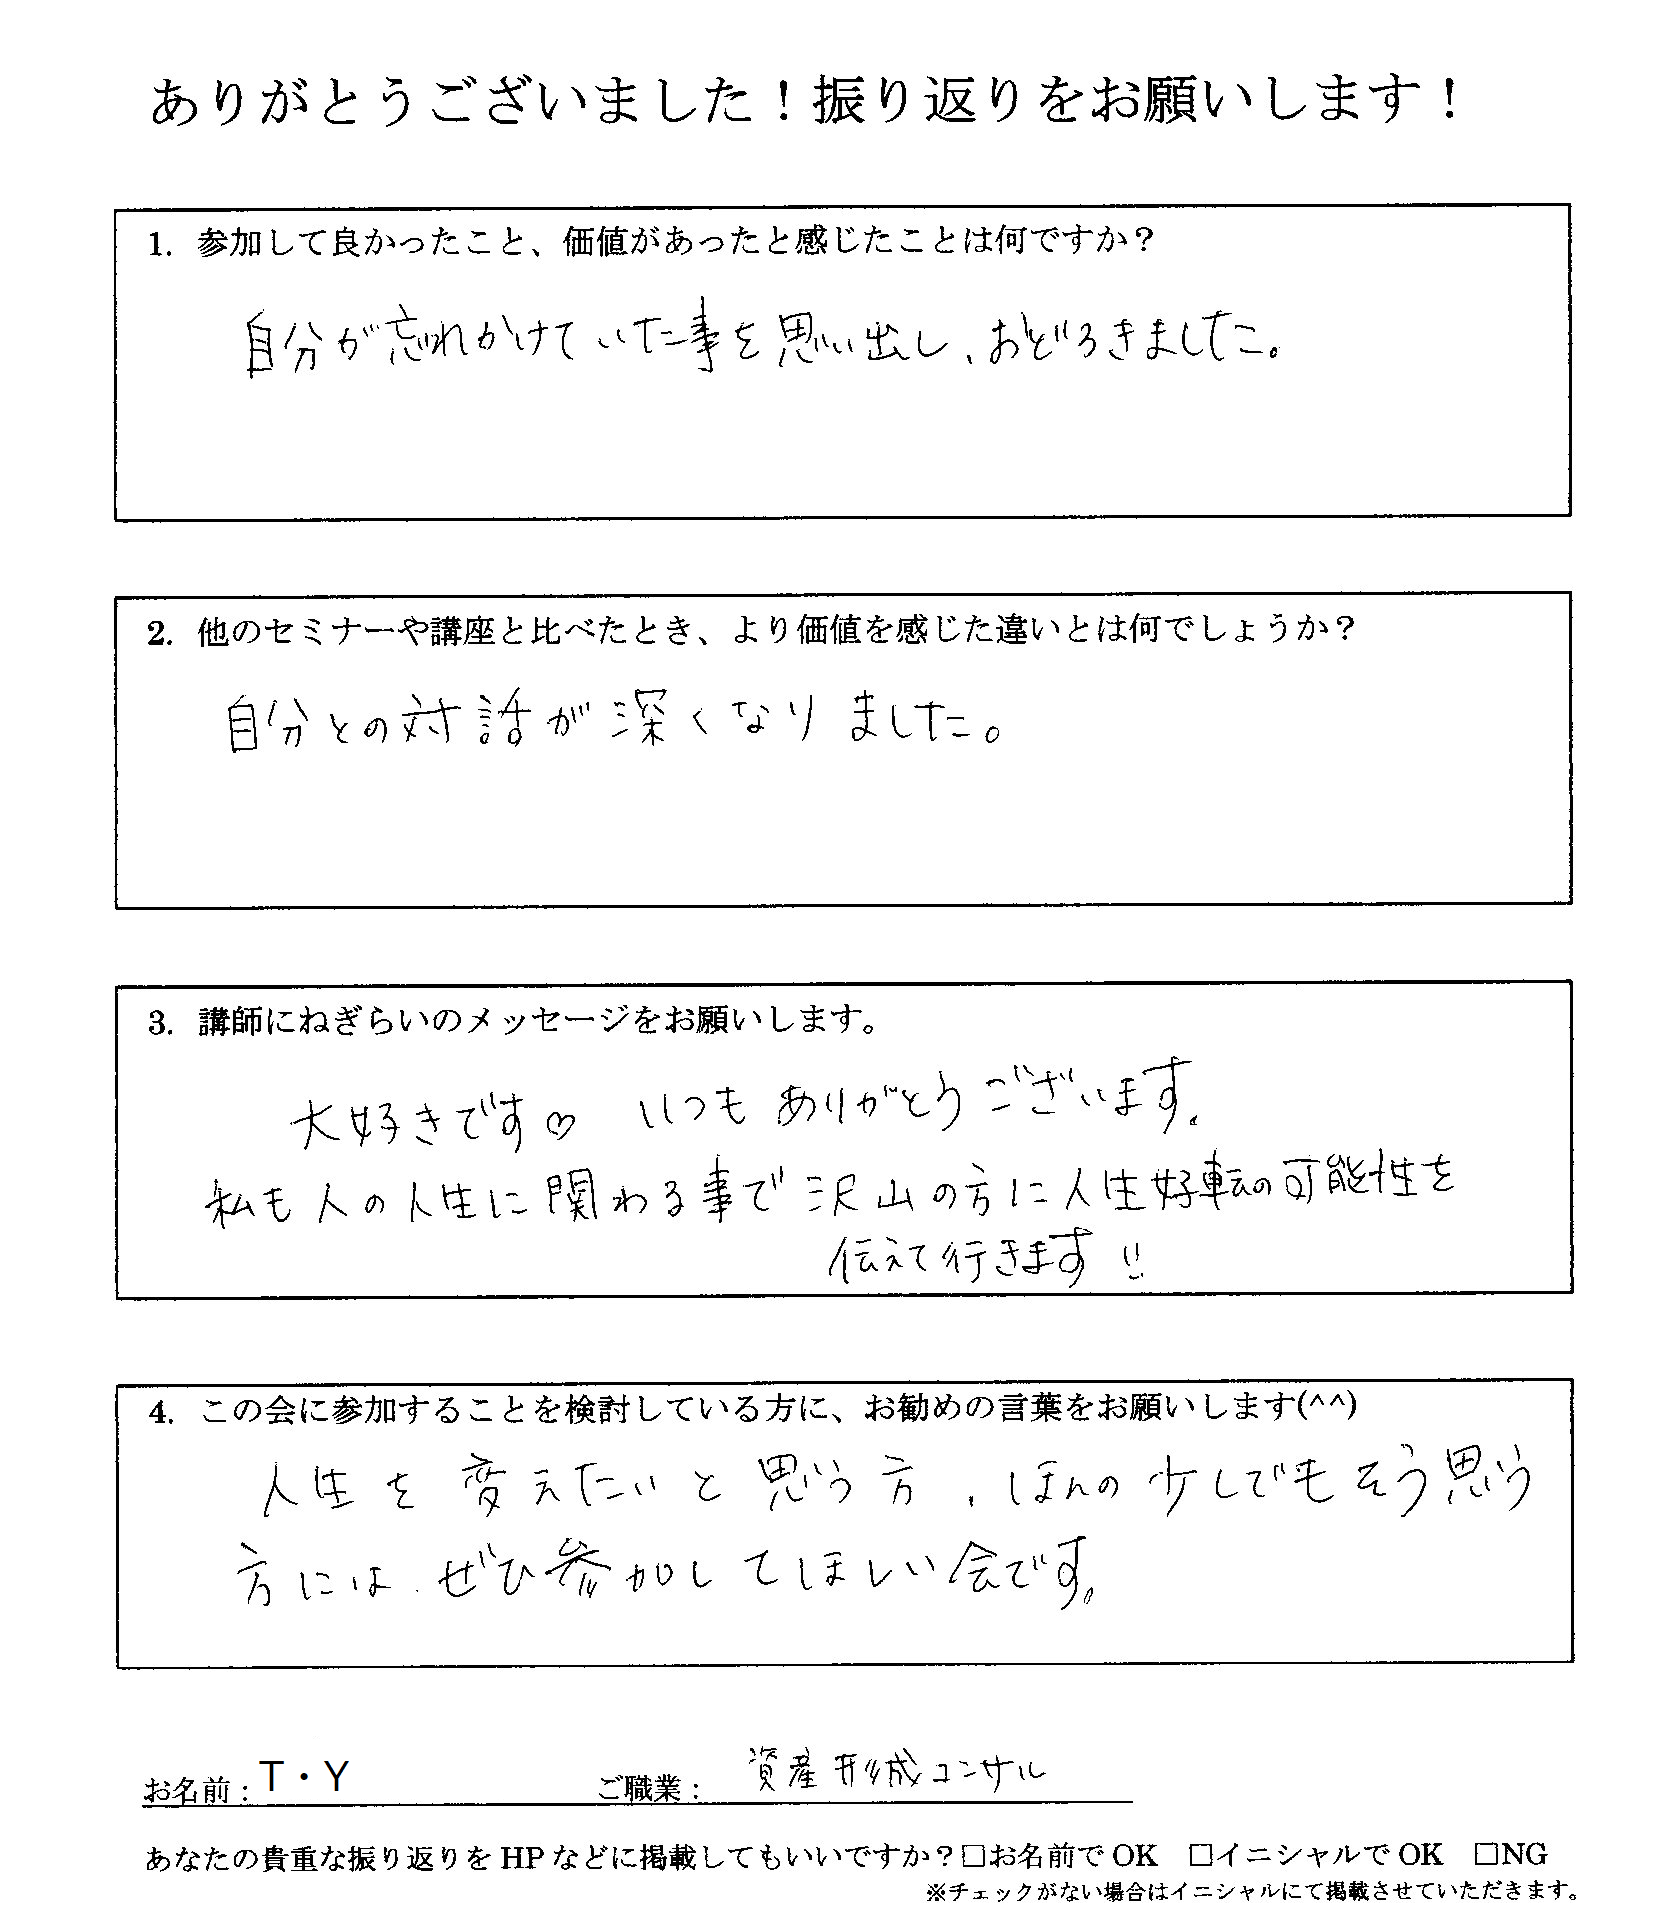 ありがとうございました！振り返りをお願いします！
1. 参加して良かったこと、価値があったと感じたことは何ですか？
自分が忘れかけていた事を思い出し、おどろきました。
2. 他のセミナーや講座と比べたとき、より価値を感じた違いとは何でしょうか？
自分との対話が深くなりました。
3. 講師にねぎらいのメッセージをお願いします。
大好きです♡ いつもありがとうございます。
私も人の人生に関わる事で沢山の方に人生好転の可能性を
伝えて行きます!!
4. この会に参加することを検討している方に、お勧めの言葉をお願いします(^^)
人生を変えたいと思う方、ほんの少しでもそう思う
方には、ぜひ参加してほしい会です。
お名前：T・Y ご職業： 資産形成コンサル
あなたの貴重な振り返りをHPなどに掲載してもいいですか？□お名前でOK □イニシャルでOK □NG
※チェックがない場合はイニシャルにて掲載させていただきます。